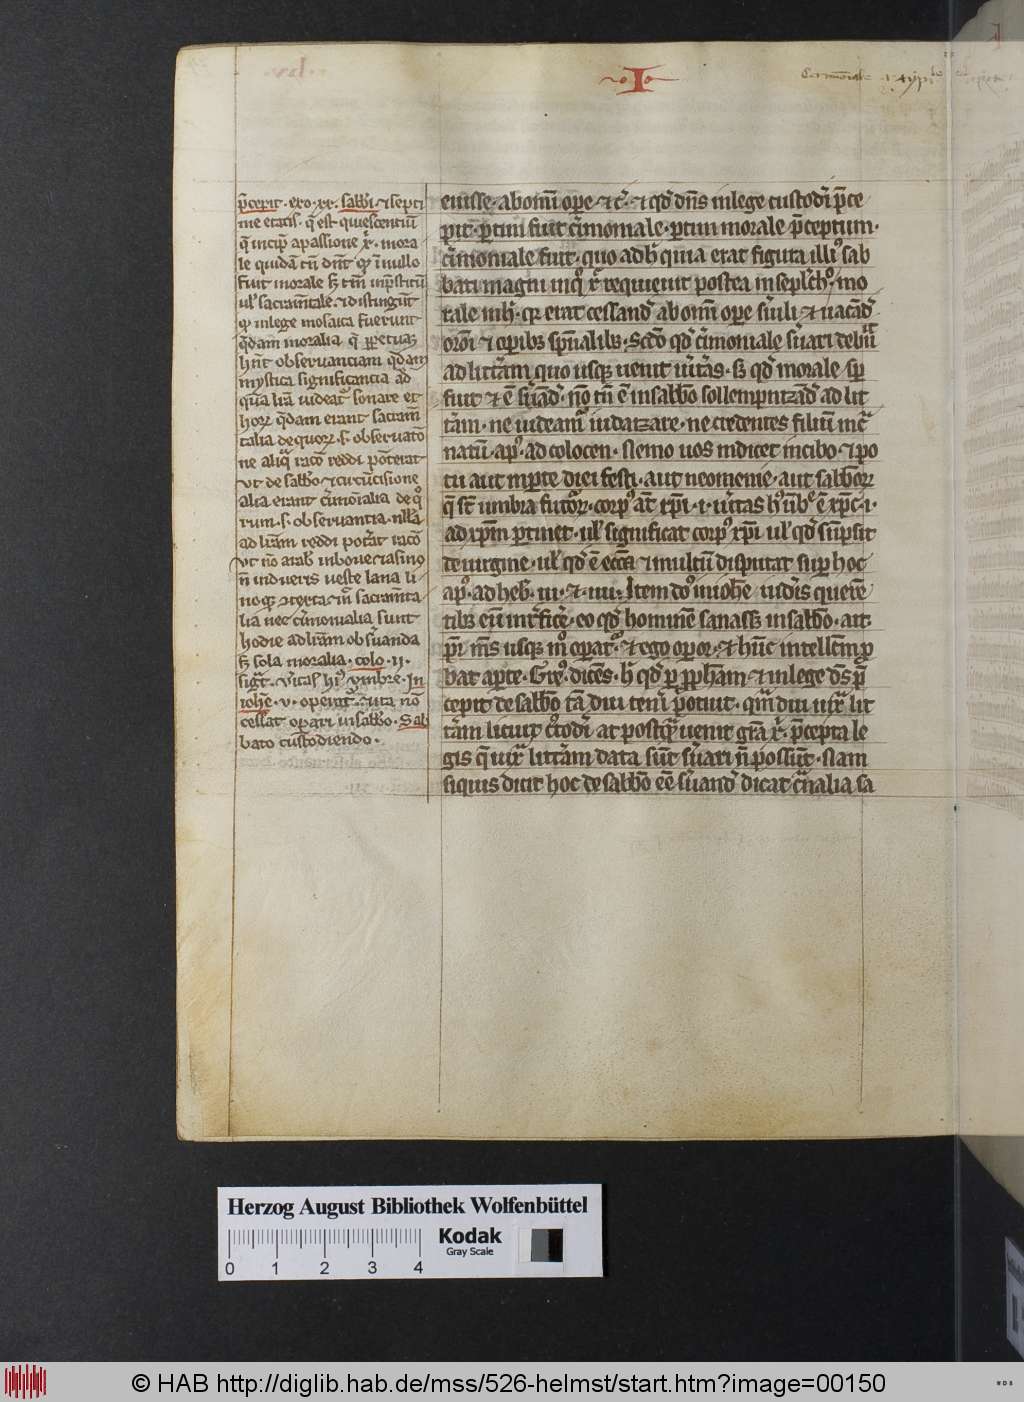 I
p̄cepit · exo · xx · sabb̄i · ⁊ septi
me etatis · q̄ est quiescentiū
q̄ incip̄ a passione x̄ · mora
le quidā tn̄ dn̄t qͥ i nullo
fuit morale
ut̓ sacram̄tale · ⁊ distingūt
qͥ in lege mosaica fuerunt
q̄dam moralia q̄ ꝑpetuaꝫ
hn̄t obseruanciam q̄dam
mystica significancia ad
sonare et
hoꝝ q̄dam erant sacram̄
talia de quoꝝ · s̄ · obseruatō
ne aliq̄ racō reddi pot̄erat
ut de sabb̄o · ⁊ circūcisione
alia erant c̓imōialia de qͦ
rum · s̄ · obseruantia · nll̓a
ad lr̄am reddi pot̓at racō
ut nō arab̓ in boue ⁊ asino
n̄ indueris ueste lana li
noqꝫ ꝯtexta · in̄ sacram̄ta
lia nec c̓imonialia sunt
hodie ad lr̄am obs̓uanda
sꝫ sola moralia · colo · ii ·
vmbre · In
ioh̄e · v · operat̓ · ⁊ ita nō
cessat oꝑari in sabb̄o · Sab
bato custodiendo ·
euisse · ab om̄i oꝑe · ⁊ c̓ · ⁊ qd̓ dn̄s in lege custodi̓ p̄ce
pit · ꝑtim fuit c̓imoniale · ꝑtim morale p̄ceptum ·
c̓imoniale fuit · quo ad h̓ quia erat figura illiꝰ sab
bati magni in qͦ x̄ requieuit postea in sepl̓chͦ · mo
rale in h̓ · qꝛ erat cessand̓ ab om̄i oꝑe s̓uili · ⁊ uacand̓
or̄oni ⁊ oꝑibꝫ spūalibꝫ · Scd̄o qd̓ c̓imoniale s̓uari debuit
ad litt̄am quo usqꝫ uenit u̓itas · sꝫ qd̓ morale sp̄
fuit ⁊ ē s̓uand̓ · nō tn̄ ē in sabb̄o sollempnizand̓ ad lit
t̄am · ne uideam̓ iudaizare · ne credentes filiū incar
natū · apͦ · ad colocen · Nemo uos iudicet in cibo · ⁊ po
tu aut in ꝑte diei festi · aut neomenie · aut sabb̄oꝝ
q̄ sr̄ umbra futoꝝ · corpꝰ at̄ xp̄i · i · u̓itas
ad xp̄m ꝑtinet · ul̓ significat corpꝰ xp̄i ul̓ qd̓ sūpsit
de uirgine · ul̓ qd̓ ē ecc̄a ⁊ multū disputat suꝑ hoc
apͦ · ad heb̓ · iii · ⁊ · iiii · Item dn̄s in ioh̄e iudeis querē
tibꝫ eū int̓fic̓e · eo qd̓ hominē sanass̓ in sabb̄o · ait
pr̄ m̄s usqꝫ mͦ oꝑatᷣ · ⁊ ego oꝑor · ⁊ hūc intellectū ꝓ
bat aꝑte · Gre̓ · dicēs · h̓ qd̓ ꝑ ꝓph̄am · ⁊ in lege dn̄s p̄
cepit de sabb̄o tā diu teneri potuit · qm̄diu iux̄ lit
t̄am licuit c̓todi̓ · at postq̄ uenit gr̄a x̄ · p̄cepta le
gis q̄ iux̄ litt̄am data sūt s̓uari n̄ possūt · Nam
siquis dicit hoc de sabb̄o eē s̓uand̓ dicat c̓nalia sa
Herzog August Bibliothek Wolfenbüttel
Kodak
Gray Scale
0 1 2 3 4
© HAB http://diglib.hab.de/mss/526-helmst/start.htm?image=00150